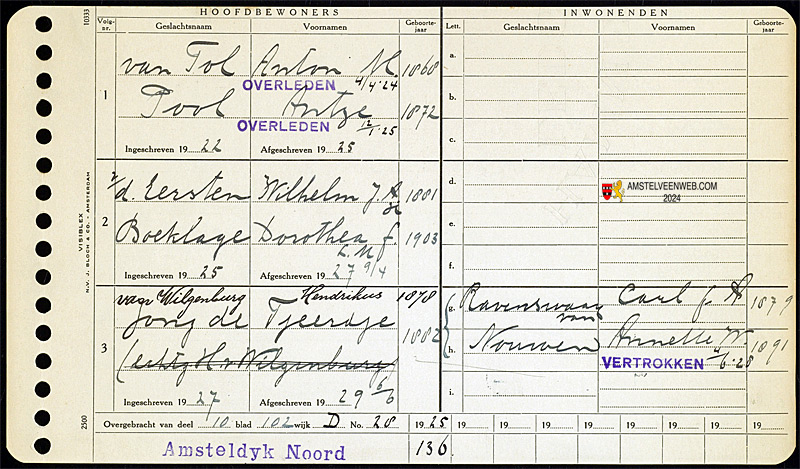 HOOFDBEWONERS
INWONENDEN
Volg-nr. Geslachtsnaam Voornamen Geboorte-jaar
Lett. Geslachtsnaam Voornamen Geboorte-jaar
van Tol Anton H. 1868
OVERLEDEN 4/4·24
1
Pool Antje 1872
OVERLEDEN 12/1·25
Ingeschreven 1922 Afgeschreven 1925
a.
b.
c.
v/d. Eersten Wilhelm J. A. 1881
2
Boeklage Dorothea J. 1903
Ingeschreven 1925 Afgeschreven 1927 9/4
d.
e.
f.
AMSTELVEENWEB.COM
2024
van Wilgenburg Hendrikus 1878
Jong de Tjeerdje 1882
3
(echtg. H. v. Wilgenburg)
Ingeschreven 1927 Afgeschreven 1929 6/6
g. Ravenswaay van Carl J. A. 1879
h. Nouwen Annette W. 1891
VERTROKKEN 4/6·25
i.
Overgebracht van deel 10 blad 102 wijk D No. 28 1925 19 19 19 19 19 19 19
Amsteldyk Noord 136
10333
VISIBLEX
N.V. J. BLOCH & CO. - AMSTERDAM
2500